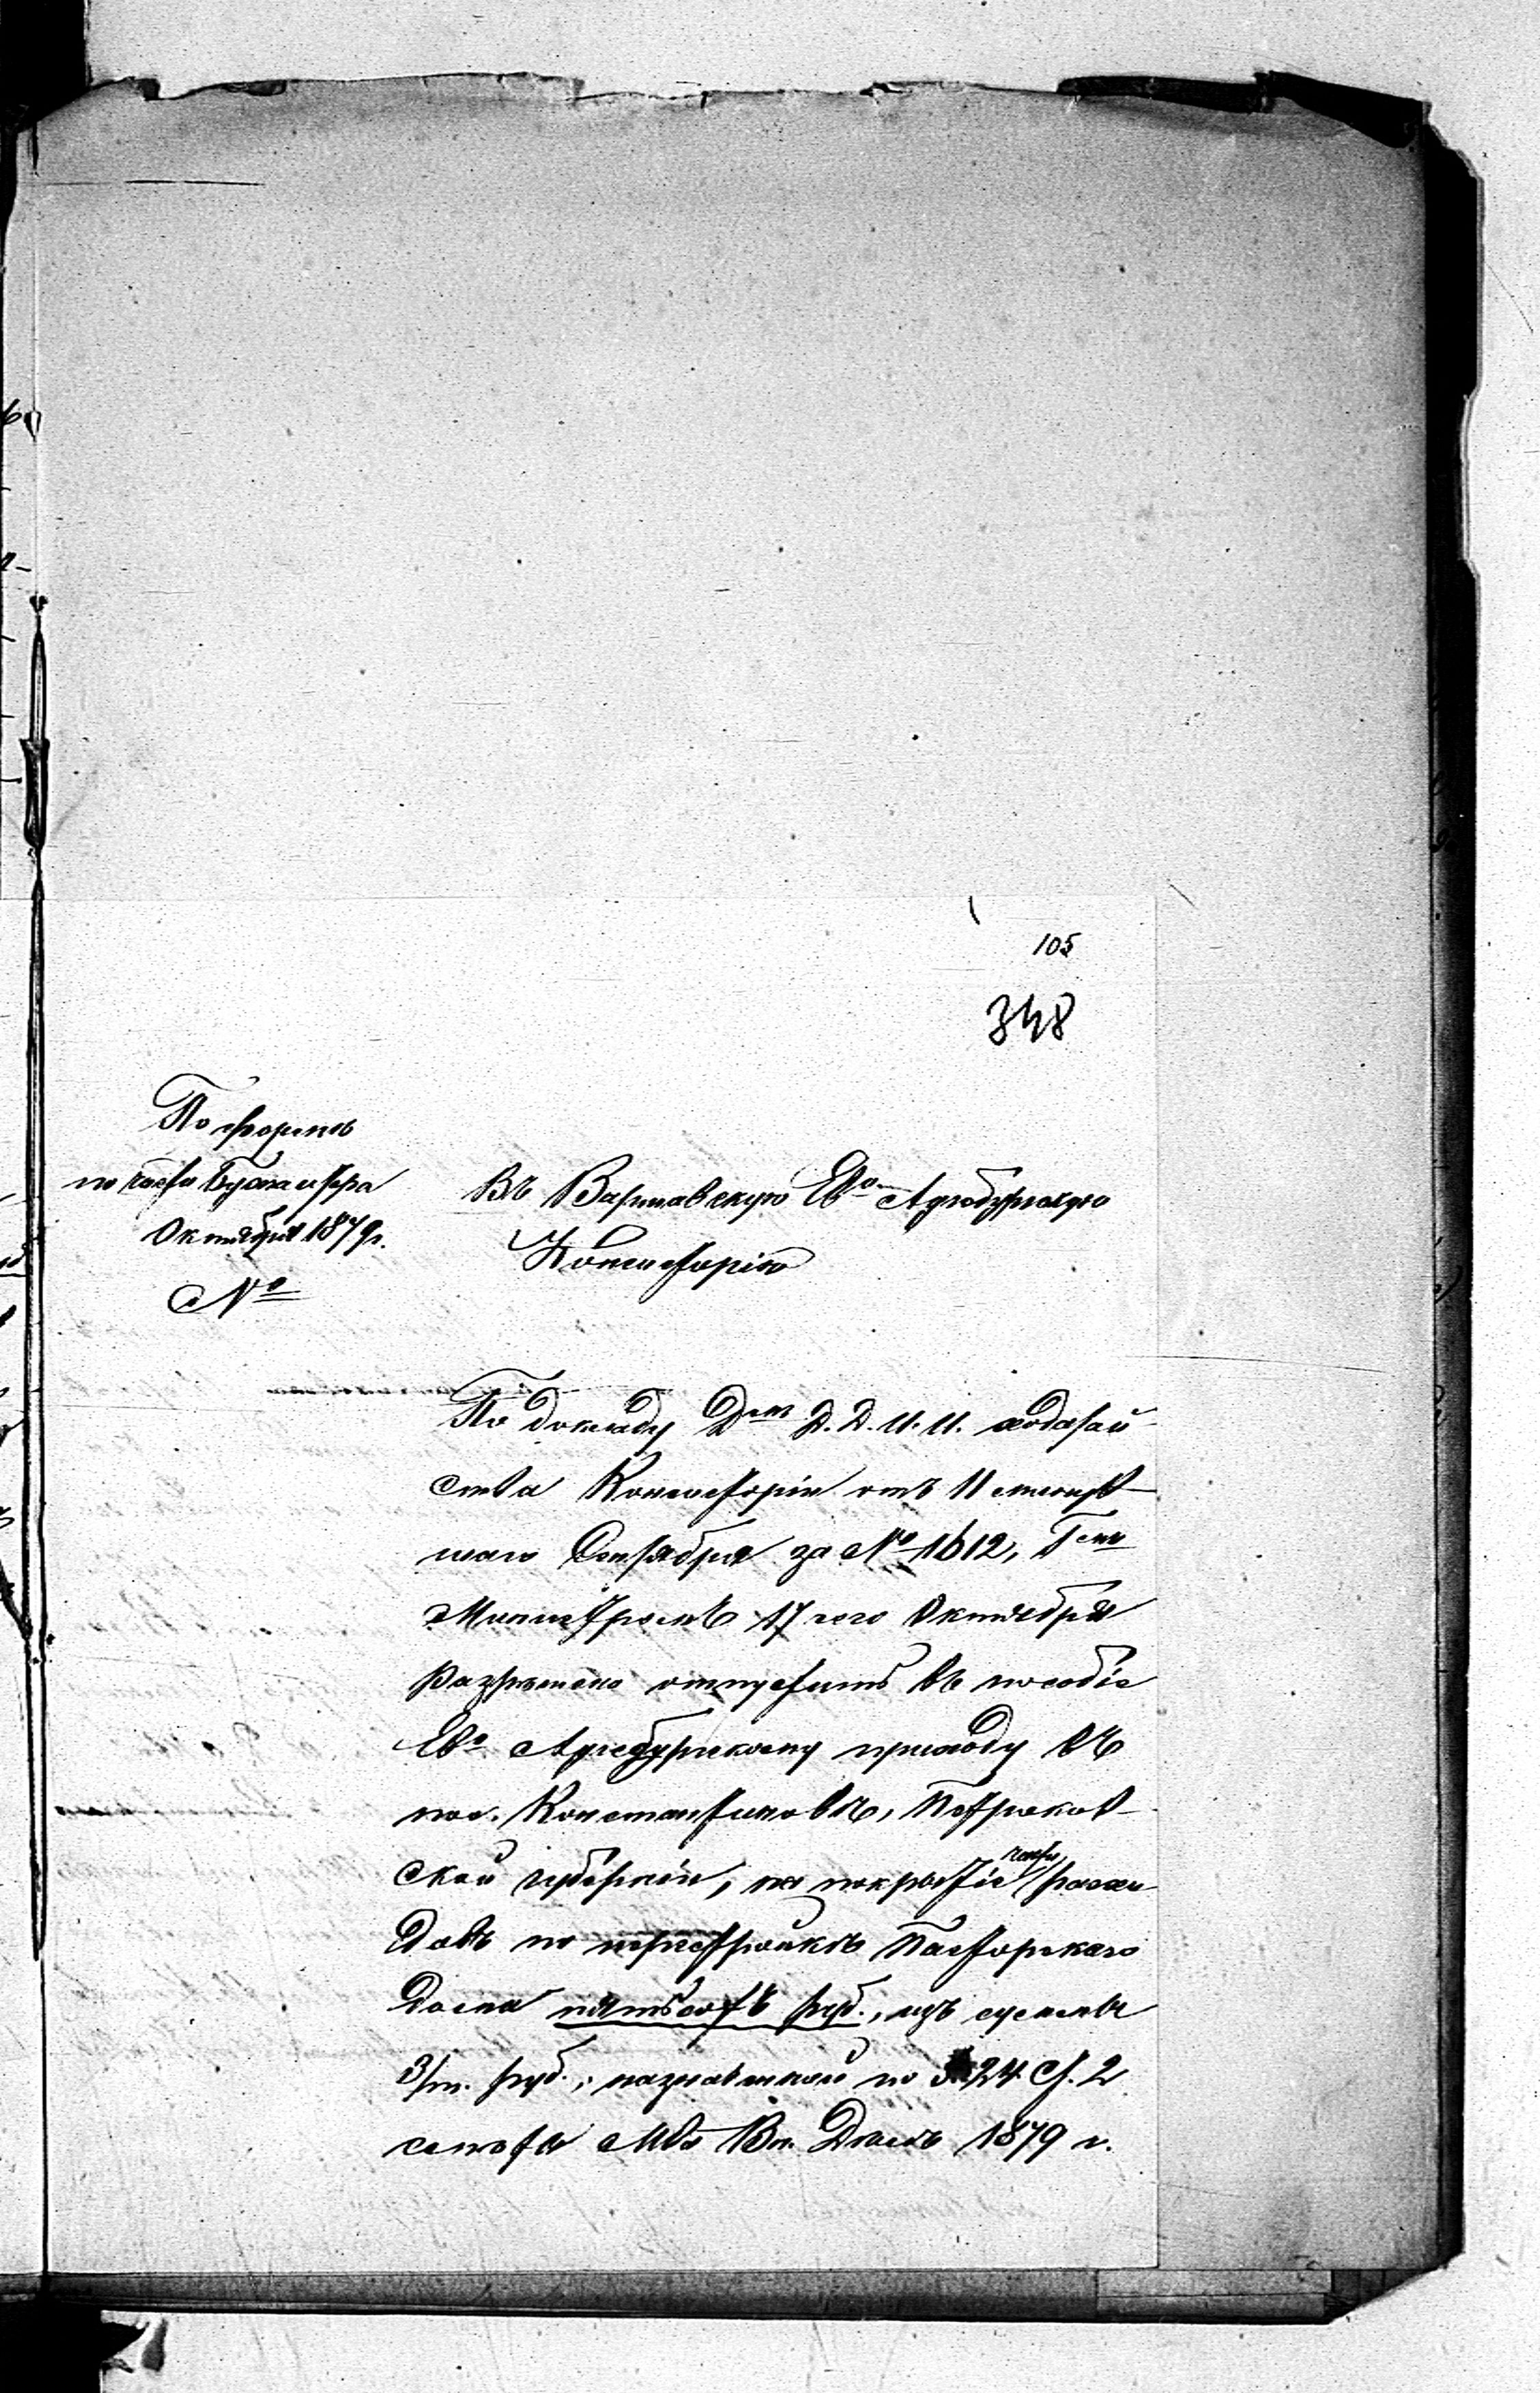 105
348
По формѣ
по части Бухгалтера
Октября 1879 г.
№
Въ Варшавскую Ево Аугсбургскую
Консисторію
По докладу Дтмъ Д. Д. И. И. ходатай-
ства Консисторіи отъ 11 минув-
шаго Сентября за № 1612, Гмъ
Министромъ 17 сего Октября
разрѣшено отпустить въ пособіе
Ево Аугсбургскому приходу въ
пос. Константиновѣ, Петроков-
ской губерніи, на покрытіе части расхо
довъ по перестройкѣ Пасторскаго
дома пятьсотъ руб., изъ суммы
3/т. руб., назначенной по § 24 ст. 2
смѣты Мва Вн. Дѣлъ 1879 г.